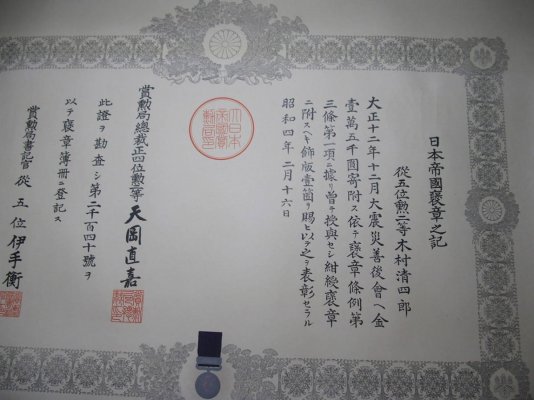 日本帝國褒章之記
從五位勲二等木村清四郎
大正十二年十二月大震災善後會ヘ金
壹萬五千圓寄附ス依テ褒章條例第
三條第一項ニ據リ曾テ授與セシ紺綬褒章
ニ附スヘキ飾版壹箇ヲ賜ヒ以テ之ヲ表彰セラル
昭和四年二月十六日
大日本帝國賞勲局印
賞勲局總裁正四位勲二等天岡直嘉
此證ヲ勘查シ第二千百四十號ヲ
以テ褒章簿冊ニ登記ス
賞勲局書記官從五位伊手衡